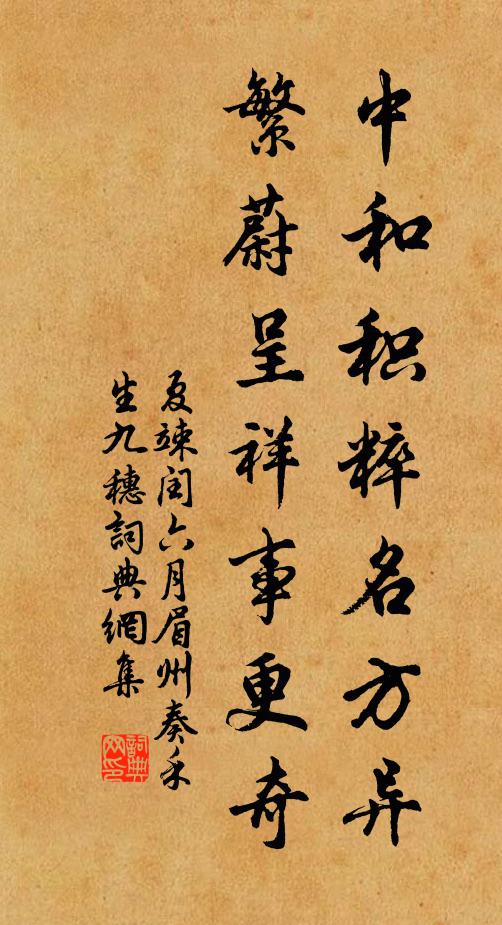 中和积粹名方异
繁蔚呈祥事更奇
夏竦闰六月眉州奏禾
生九穗詞典網集
詞典
网印